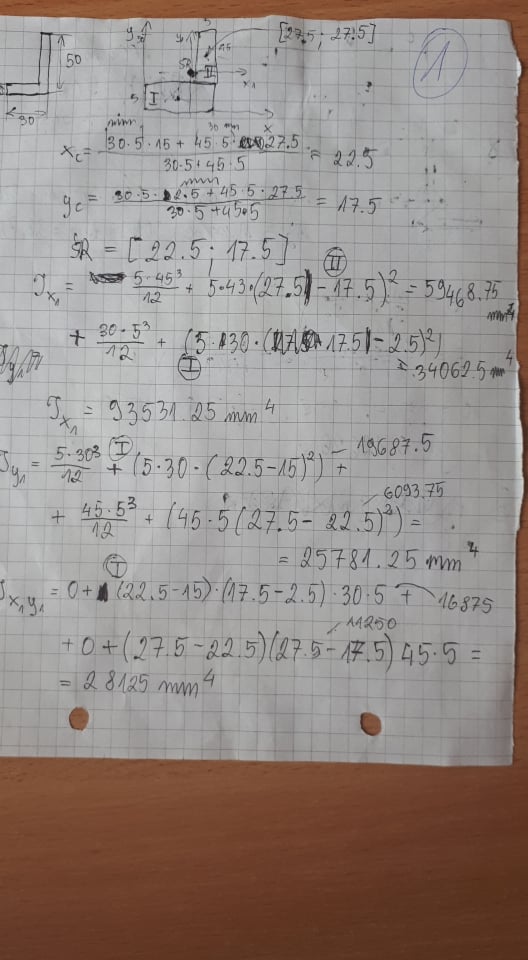 [27.5 ; 27.5]
1
50
30
5
15
5
I
II
x₁
30 mm
x
x_c = (30·5·15 + 45·5·27.5)/(30·5+45·5) = 22.5
y_c = (30·5·2.5+45·5·27.5)/(30·5+45·5) = 17.5
= [22.5 ; 17.5]
II
J_x₁ = 5·45³/12 + 5·43·(27.5 - 17.5)² = 59468.75 mm⁴
+ 30·5³/12 + (5·30·(17.5 - 2.5)²)
I
34062.5 mm⁴
J_x₁ = 93531.25 mm⁴
J_y₁ = 5·30³/12 + (5·30·(22.5-15)²) + 19687.5
I
6093.75
+ 45·5³/12 + (45·5(27.5-22.5)²) =
= 25781.25 mm⁴
I
J_x₁y₁ = 0+(22.5-15)·(17.5-2.5)·30·5 + 16875
11250
+0+(27.5-22.5)(27.5-17.5)45·5 =
= 28125 mm⁴